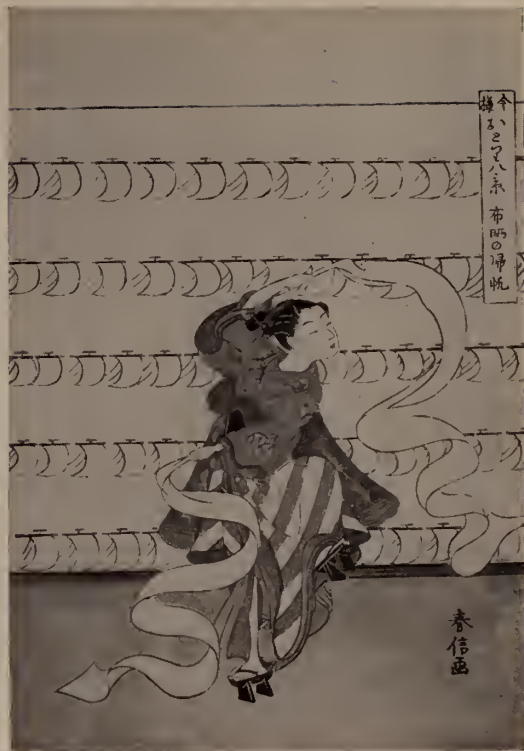 今様おとり八景 布晒の帰帆
春信画